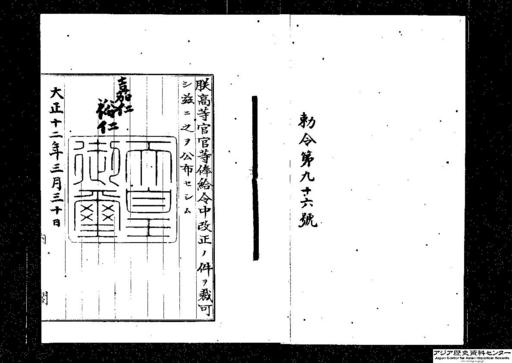 勅令第九十六號
朕高等官官等俸給令中改正ノ件ヲ裁可
シ茲ニ之ヲ公布セシム
嘉仁
裕仁
天皇
御璽
大正十二年三月三十日
内閣
アジア歴史資料センター
Japan Center for Asian Historical Records